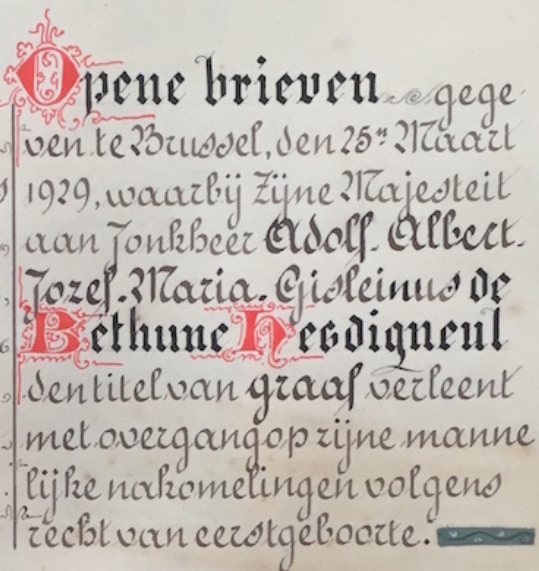 Opene brieven gege
ven te Brussel, den 25ⁿ Maart
1929, waarbij Zijne Majesteit
aan Jonkheer Adolf. Albert.
Jozef. Maria. Gisleinus de
Béthune Hesdigneul
den titel van graaf verleent
met overgang op zijne manne
lijke nakomelingen volgens
recht van eerstgeboorte.